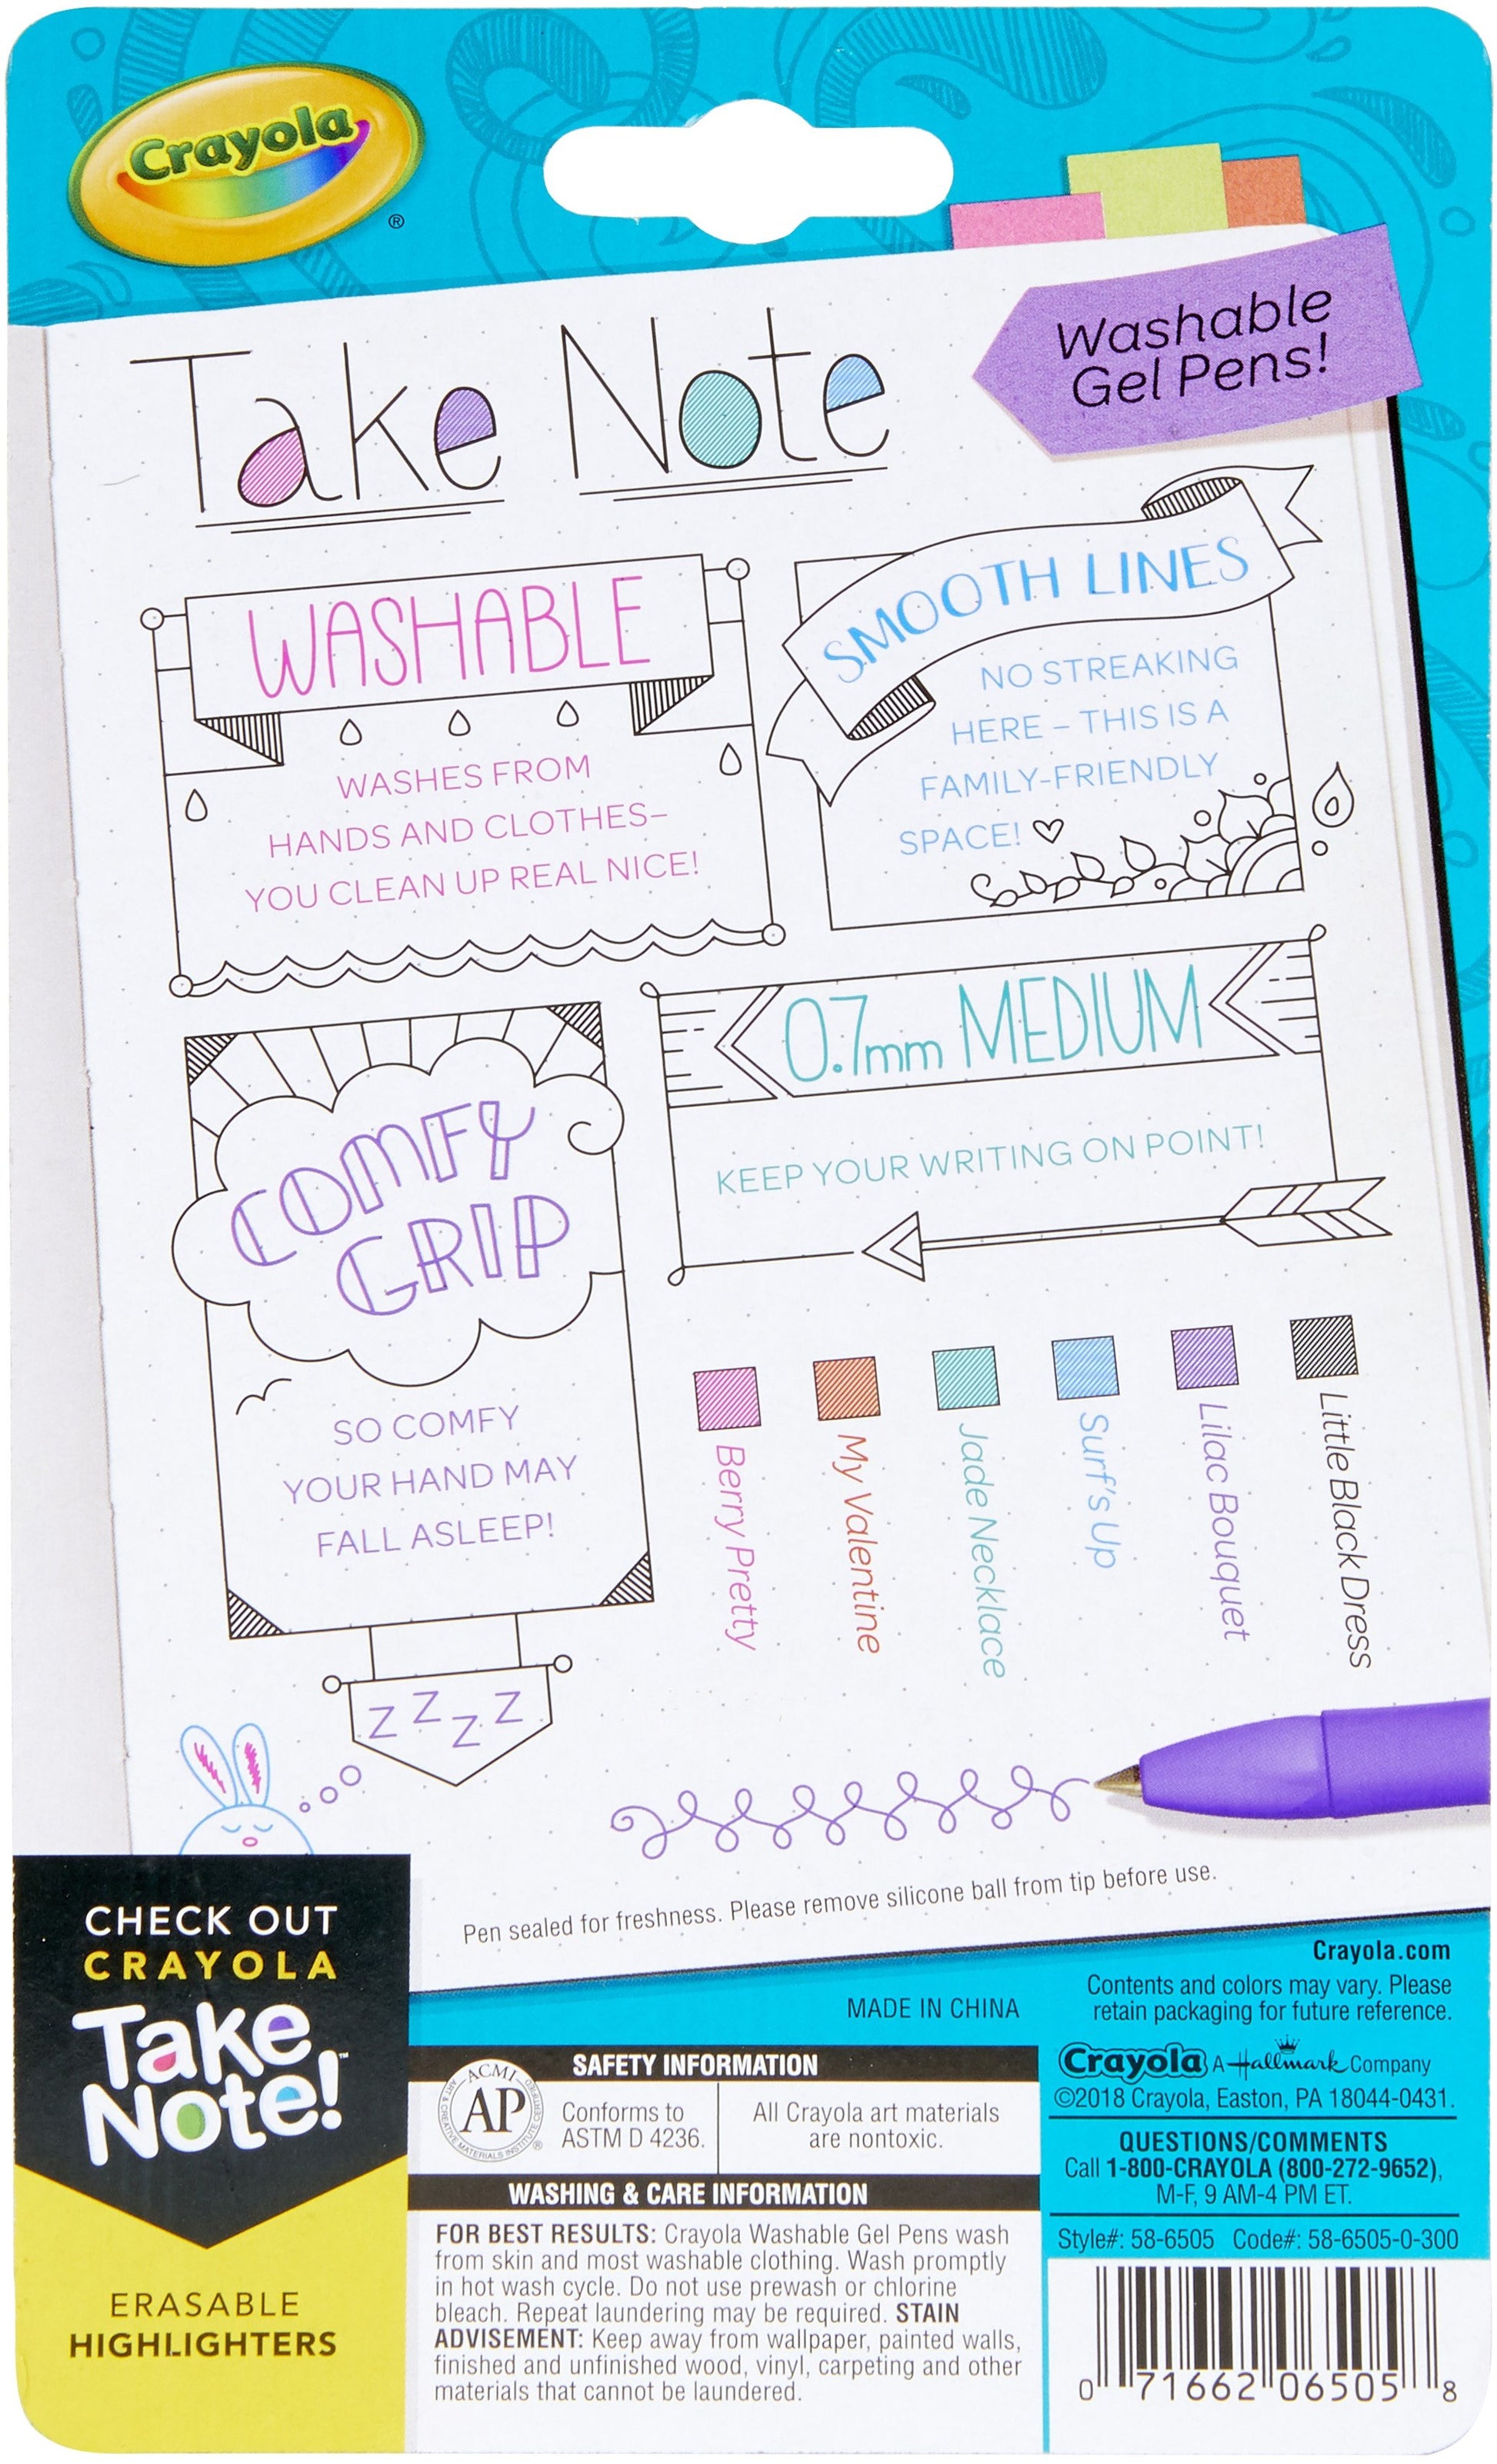 Crayola
®
Washable
Gel Pens!
Take Note
WASHABLE
WASHES FROM
HANDS AND CLOTHES–
YOU CLEAN UP REAL NICE!
SMOOTH LINES
NO STREAKING
HERE – THIS IS A
FAMILY-FRIENDLY
SPACE!
0.7mm MEDIUM
KEEP YOUR WRITING ON POINT!
COMFY
GRIP
SO COMFY
YOUR HAND MAY
FALL ASLEEP!
Z Z Z Z
Berry Pretty
My Valentine
Jade Necklace
Surf's Up
Lilac Bouquet
Little Black Dress
Pen sealed for freshness. Please remove silicone ball from tip before use.
CHECK OUT
CRAYOLA
Take
Note!™
ERASABLE
HIGHLIGHTERS
MADE IN CHINA
SAFETY INFORMATION
ACMI
AP
ART & CREATIVE MATERIALS INSTITUTE CERTIFIED
®
Conforms to
ASTM D 4236.
All Crayola art materials
are nontoxic.
WASHING & CARE INFORMATION
FOR BEST RESULTS: Crayola Washable Gel Pens wash
from skin and most washable clothing. Wash promptly
in hot wash cycle. Do not use prewash or chlorine
bleach. Repeat laundering may be required. STAIN
ADVISEMENT: Keep away from wallpaper, painted walls,
finished and unfinished wood, vinyl, carpeting and other
materials that cannot be laundered.
Crayola.com
Contents and colors may vary. Please
retain packaging for future reference.
Crayola A Hallmark Company
©2018 Crayola, Easton, PA 18044-0431.
QUESTIONS/COMMENTS
Call 1-800-CRAYOLA (800-272-9652),
M-F, 9 AM-4 PM ET.
Style#: 58-6505 Code#: 58-6505-0-300
0 71662 06505 8